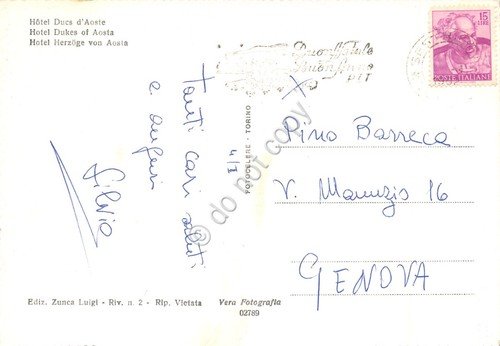 Hôtel Ducs d'Aoste
Hotel Dukes of Aosta
Hotel Herzöge von Aosta
15
LIRE
POSTE ITALIANE
Buon Natale
Buon Anno
PTT
Tanti cari saluti
e auguri
Silvio
4/I
FOTOCELERE - TORINO
do not copy
Pino Barreca
V. Manuzio 16
GENOVA
Ediz. Zunca Luigi - Riv. n. 2 - Rip. Vietata
Vera Fotografia
02789